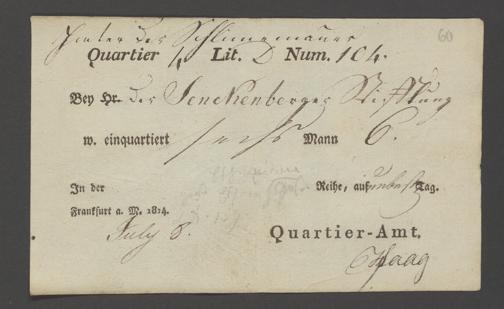 Hinter der Schlimmemauer 60
Quartier Lit. D Num. 104.
Bey Hr. der Senckenberger Stifftung
w. einquartiert sechs Mann 6.
In der Reihe, auf unbest Tag.
Frankfurt a. M. 1814.
July 8.
Quartier-Amt.
Haag